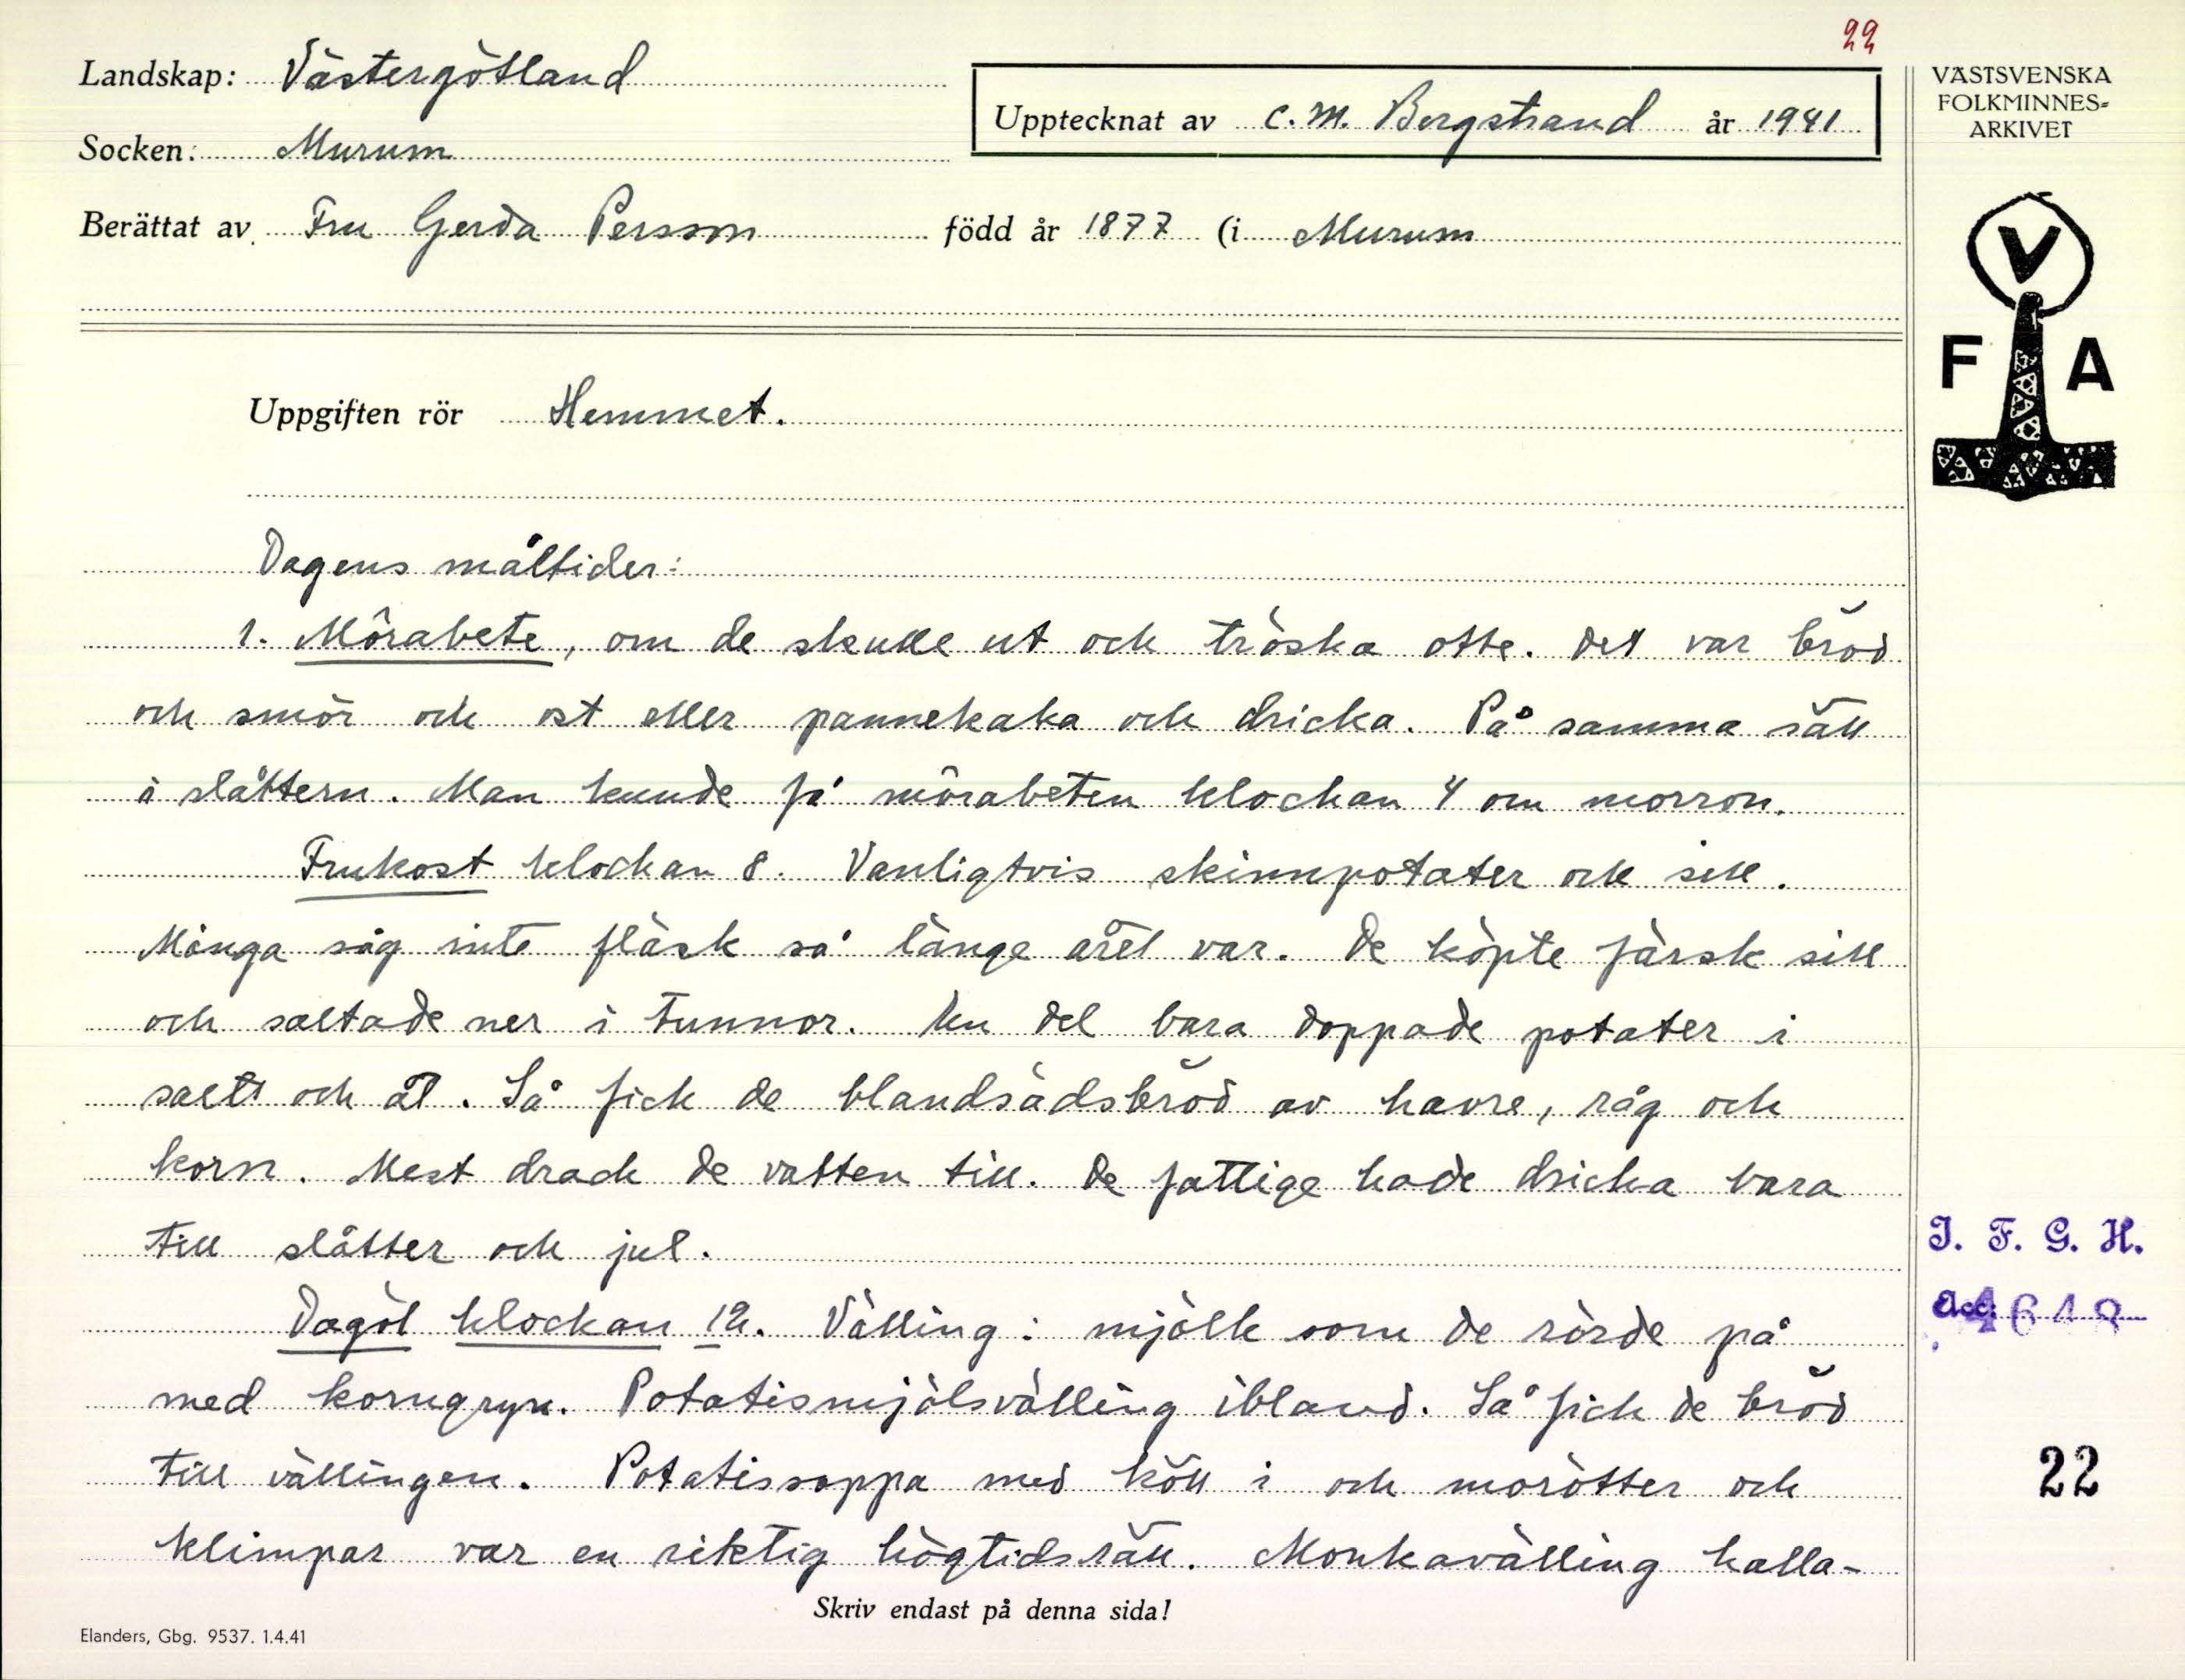 22
Landskap: Västergötland
Upptecknat av C. M. Bergstrand år 1941
VÄSTSVENSKA
FOLKMINNES=
ARKIVET
Socken: Murum
Berättat av Fru Gerda Persson född år 1877 (i Murum
V
F A
Uppgiften rör Hemmet.
Dagens måltider:
1. Môrabete, om de skulle ut och tröska otte. Det var bröd
och smör och ost eller pannekaka och dricka. På samma sätt
i slåttern. Man kunde få môrabeten klockan 4 om morron.
Frukost klockan 8. Vanligtvis skinnpotater och sill.
Många såg inte fläsk så länge året var. De köpte färsk sill
och saltade ner i tunnor. En del bara doppade potater i
salt och åt. Så fick de blandsädsbröd av havre, råg och
korn. Mest drack de vatten till. De fattige hade dricka bara
till slåtter och jul.
I. F. G. H.
Dagöl klockan 12. Välling: mjölk som de rörde på
Acc. 4618
med korngryn. Potatismjölsvälling ibland. Så fick de bröd
till vällingen. Potatissoppa med kött i och morötter och
22
klimpar var en riktig högtidsrätt. Monkavälling kalla-
Skriv endast på denna sida!
Elanders, Gbg. 9537. 1.4.41